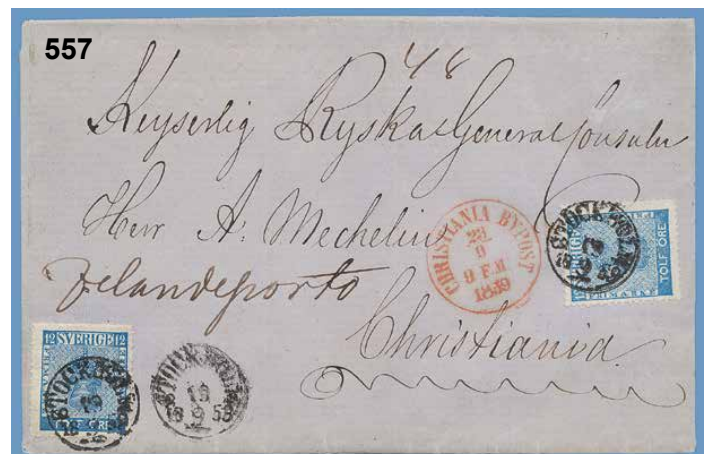 557
48
Keyserlig Ryska General Consuln
Herr A. Mechelin
Christiania
CHRISTIANIA BYPOST
23
9
9 F.M
1859
STOCKHOLM
19
9
TOLF ÖRE
FRIMÄRKE
12 SVERIGE 12
STOCKHOLM
19
9
STOCKHOLM
19
18 9 5